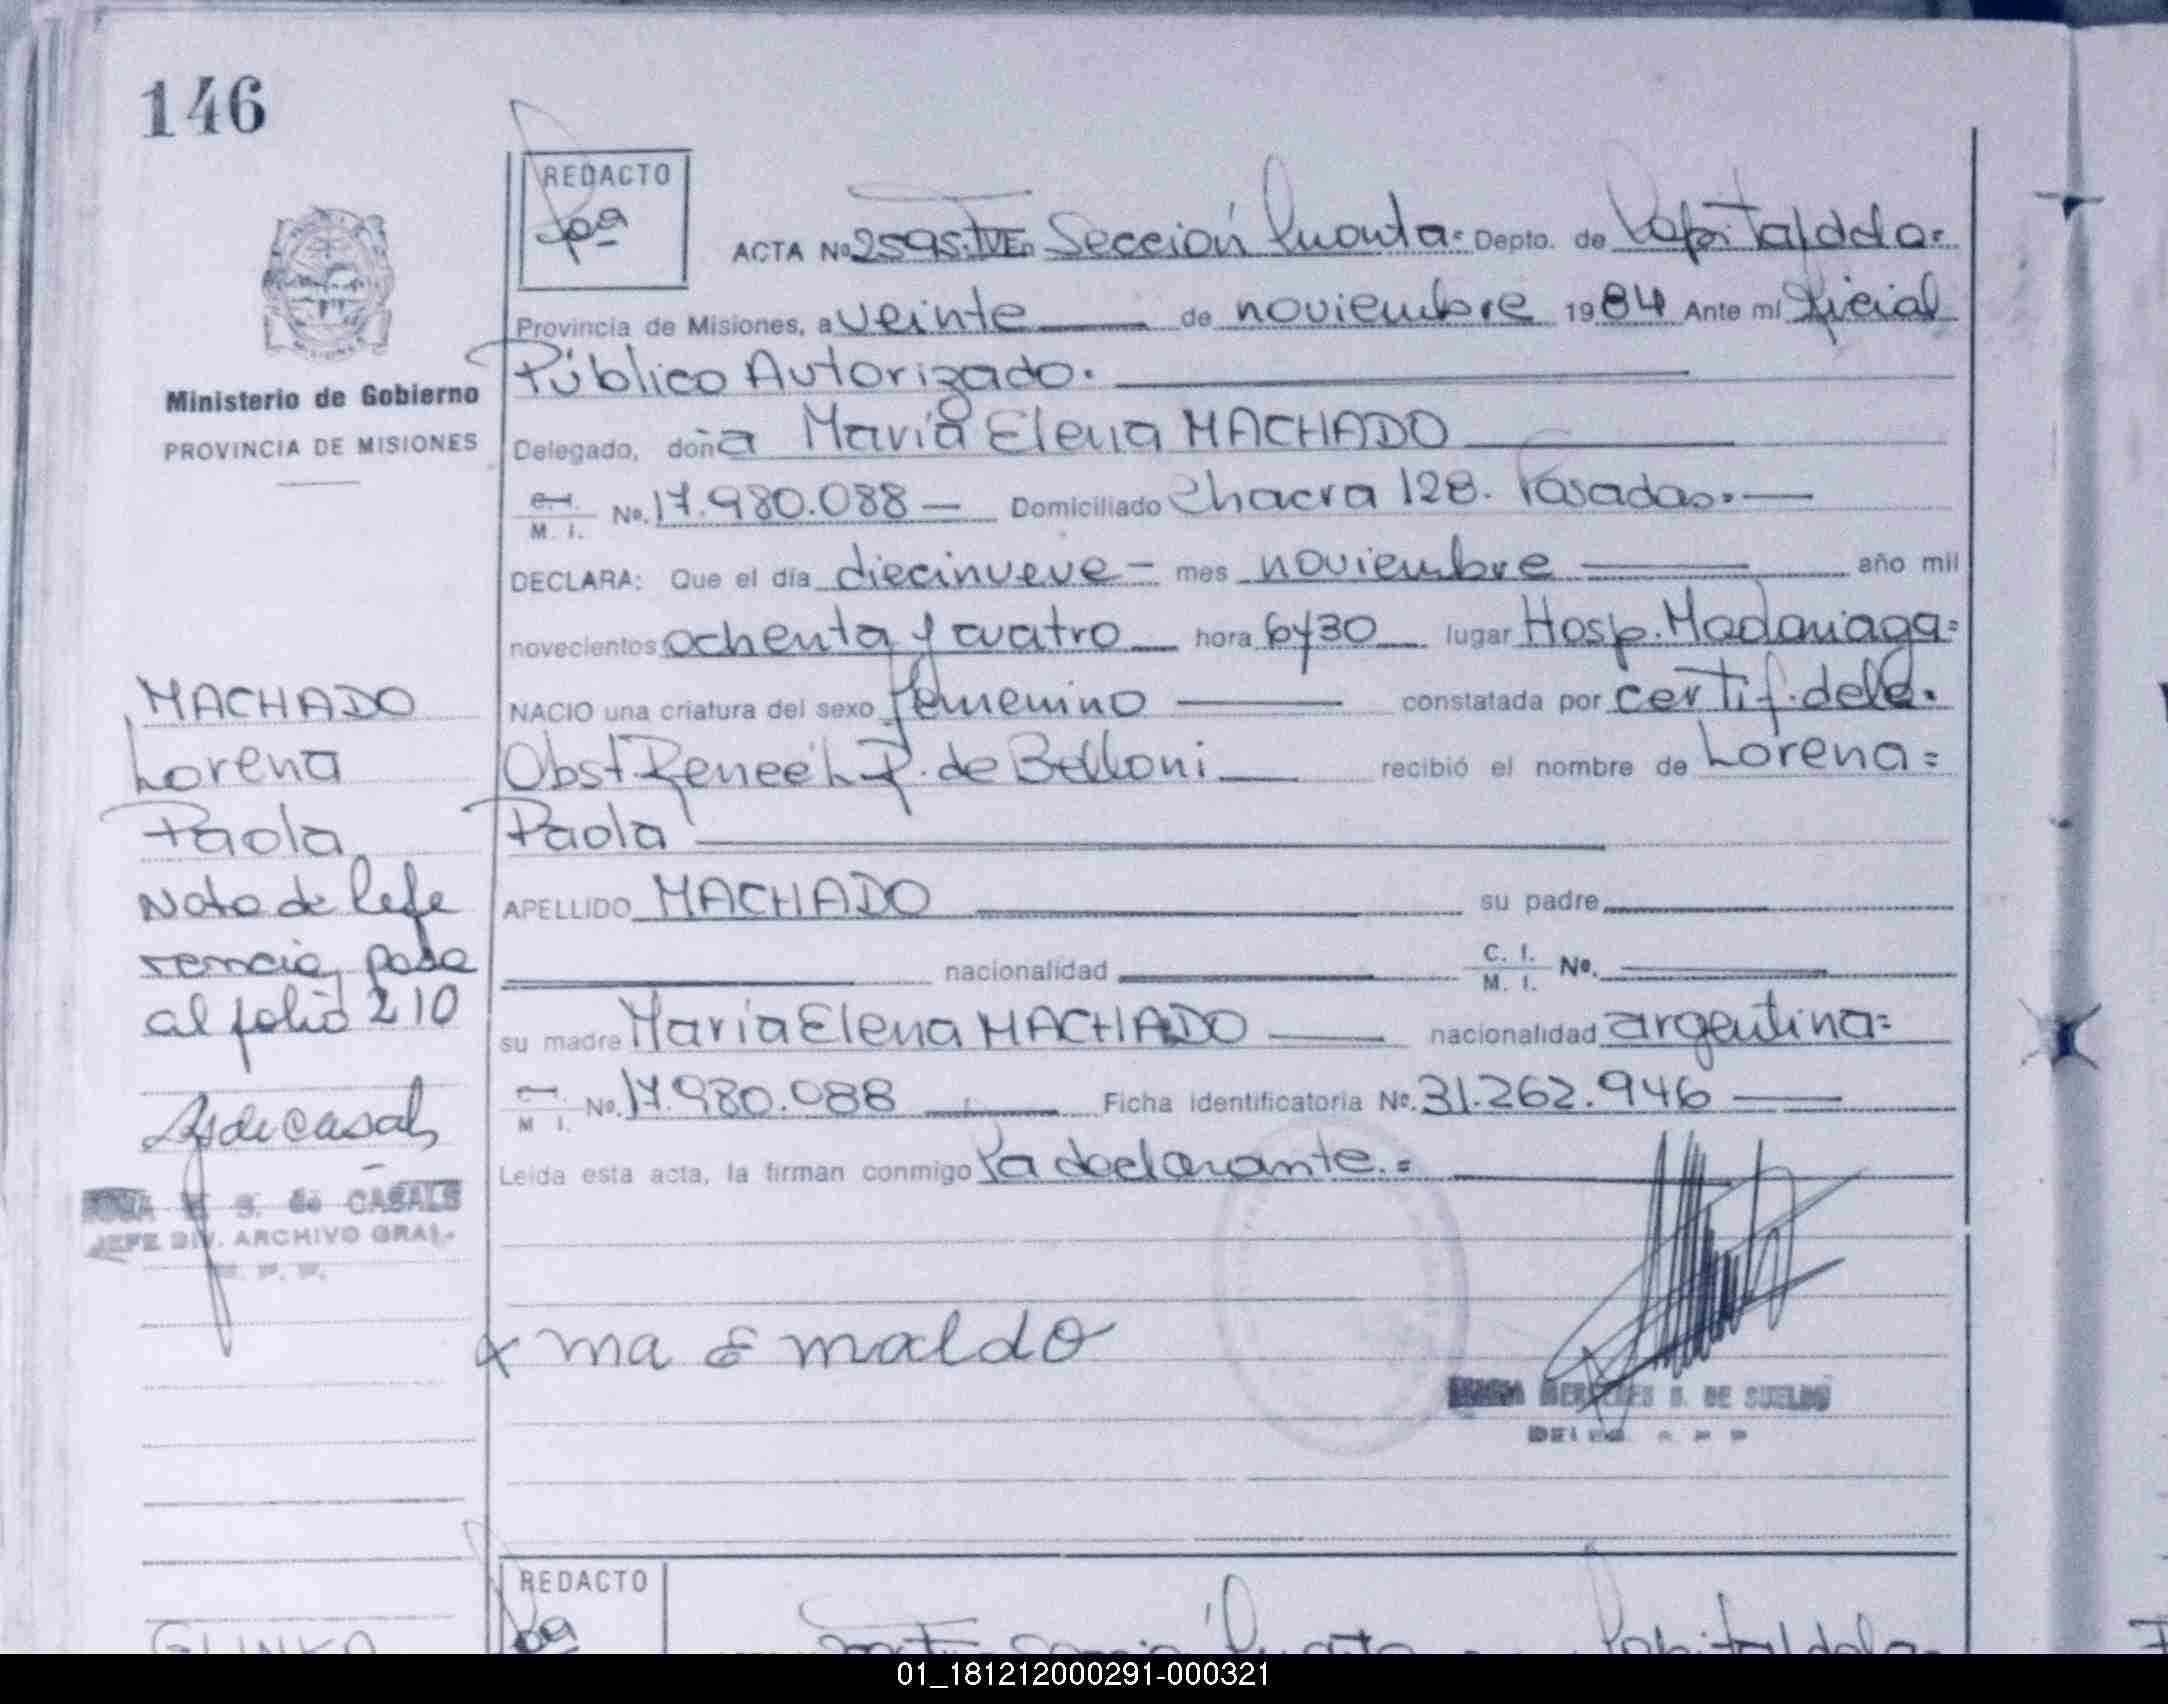 146
REDACTO
ACTA Nº 2595.TVE. Sección Cuarta= Depto. de Capital dela=
Provincia de Misiones, a veinte de noviembre 1984 Ante mí Oficial
Público Autorizado.
Ministerio de Gobierno
PROVINCIA DE MISIONES
Delegado, doña María Elena MACHADO
M. I. Nº. 17.980.088 Domiciliado Chacra 128. Posadas.
DECLARA: Que el día diecinueve mes noviembre año mil
novecientos ochenta y cuatro hora 6y30 lugar Hosp. Madariaga=
NACIO una criatura del sexo femenino constatada por certif. dela.
Obst Reneé L. R. de Belloni recibió el nombre de Lorena=
Paola
APELLIDO MACHADO su padre
nacionalidad C. I. M. I. Nº.
su madre María Elena MACHADO nacionalidad argentina=
M I. Nº. 17.980.088 Ficha identificatoria Nº. 31.262.946
Leída esta acta, la firman conmigo la declarante.=
MACHADO
Lorena
Paola
Nota de Refe
rencia, pasa
al folio 210
de Casals
S. de CASALS
JEFE DIV. ARCHIVO GRAL.
ma E maldo
MERCEDES B. DE SUELDO
REDACTO
01_181212000291-000321